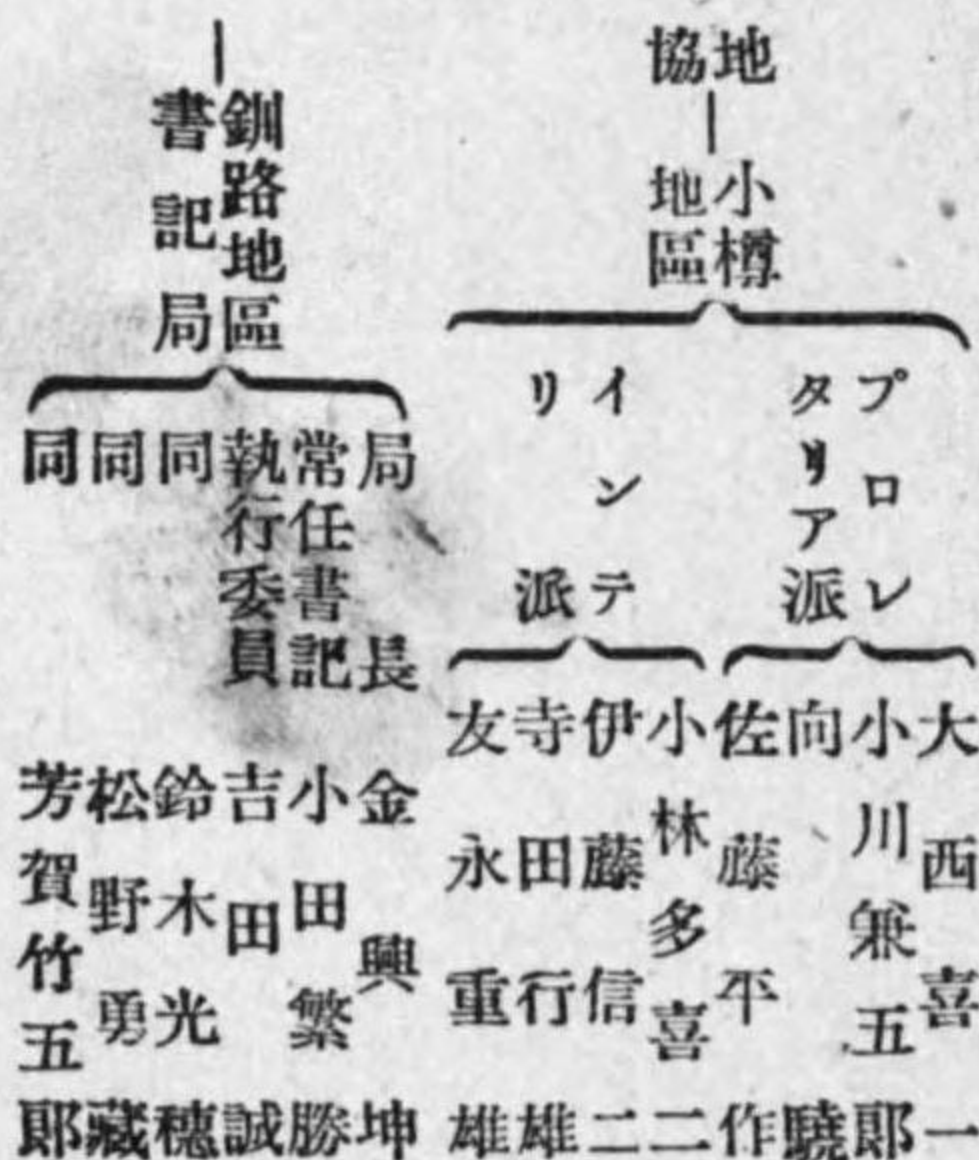 地
協
小樽
地區
プロレ
タリア派
大西喜一
小川兼五郎
向驍
佐藤平作
インテ
リ派
小林多喜二
伊藤信二
寺田行雄
友永重雄
釧路地區
書記局
局長 金興坤
常任書記 小田繁勝
執行委員 吉田誠
同 鈴木光穗
同 松野勇藏
同 芳賀竹五郎